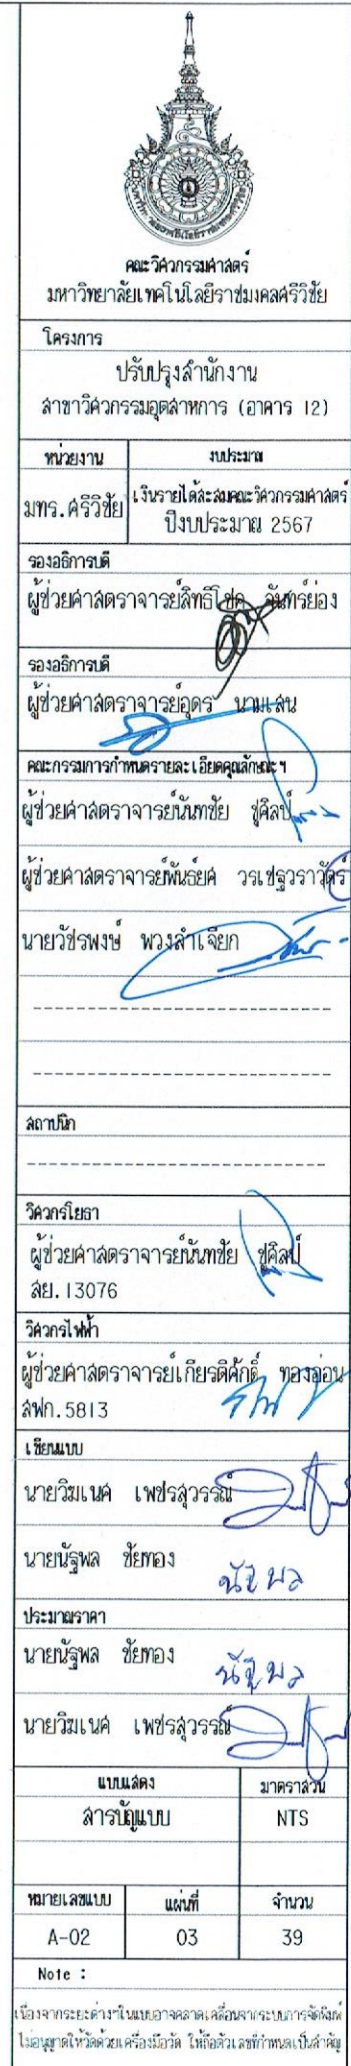 คณะวิศวกรรมศาสตร์
มหาวิทยาลัยเทคโนโลยีราชมงคลศรีวิชัย
โครงการ
ปรับปรุงสำนักงาน
สาขาวิศวกรรมอุตสาหการ (อาคาร 12)
หน่วยงาน งบประมาณ
มทร.ศรีวิชัย เงินรายได้สะสมคณะวิศวกรรมศาสตร์
ปีงบประมาณ 2567
รองอธิการบดี
ผู้ช่วยศาสตราจารย์สิทธิโชค จันทร์ย่อง
รองอธิการบดี
ผู้ช่วยศาสตราจารย์อุดร นามเสน
คณะกรรมการกำหนดรายละเอียดคุณลักษณะฯ
ผู้ช่วยศาสตราจารย์นันทชัย ชูศิลป์
ผู้ช่วยศาสตราจารย์พันธ์ยศ วรเชฐวราวัตร์
นายวัชรพงษ์ พวงลำเจียก
สถาปนิก
วิศวกรโยธา
ผู้ช่วยศาสตราจารย์นันทชัย ชูศิลป์
สย.13076
วิศวกรไฟฟ้า
ผู้ช่วยศาสตราจารย์เกียรติศักดิ์ ทองอ่อน
สฟก.5813
เขียนแบบ
นายวิฆเนศ เพชรสุวรรณ์
นายนัฐพล ชัยทอง
นัฐพล
ประมาณราคา
นายนัฐพล ชัยทอง
นัฐพล
นายวิฆเนศ เพชรสุวรรณ์
แบบแสดง มาตราส่วน
สารบัญแบบ NTS
หมายเลขแบบ แผ่นที่ จำนวน
A-02 03 39
Note :
เนื่องจากระยะต่างๆในแบบอาจคลาดเคลื่อนจากระบบการจัดพิมพ์
ไม่อนุญาตให้วัดด้วยเครื่องมือวัด ให้ถือตัวเลขที่กำหนดเป็นสำคัญ